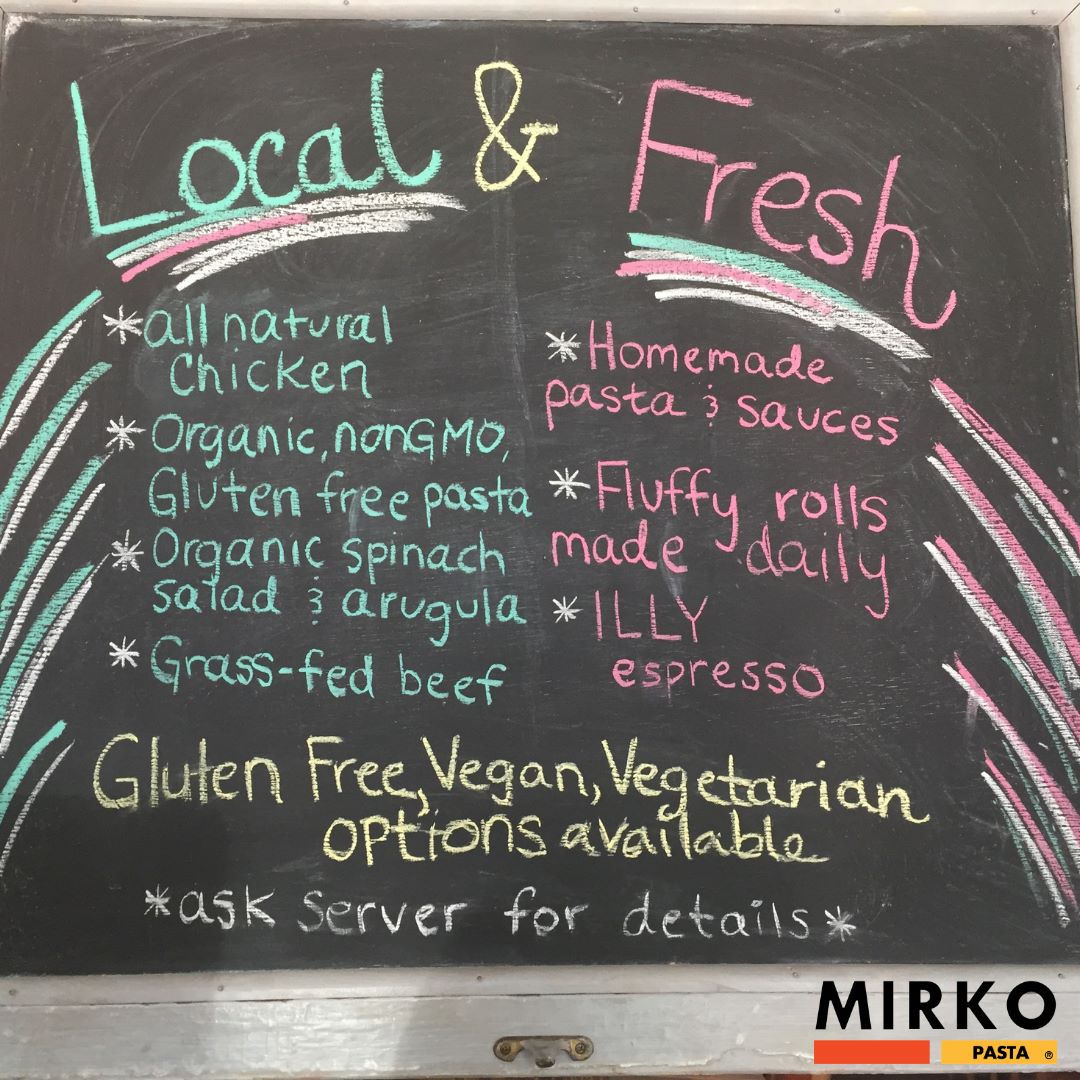 Local & Fresh
*all natural
chicken
*Organic, nonGMO,
Gluten free pasta
*Organic spinach
salad & arugula
*Grass-fed beef
*Homemade
pasta & sauces
*Fluffy rolls
made daily
*ILLY
espresso
Gluten Free, Vegan, Vegetarian
options available
*ask server for details*
MIRKO
PASTA ®